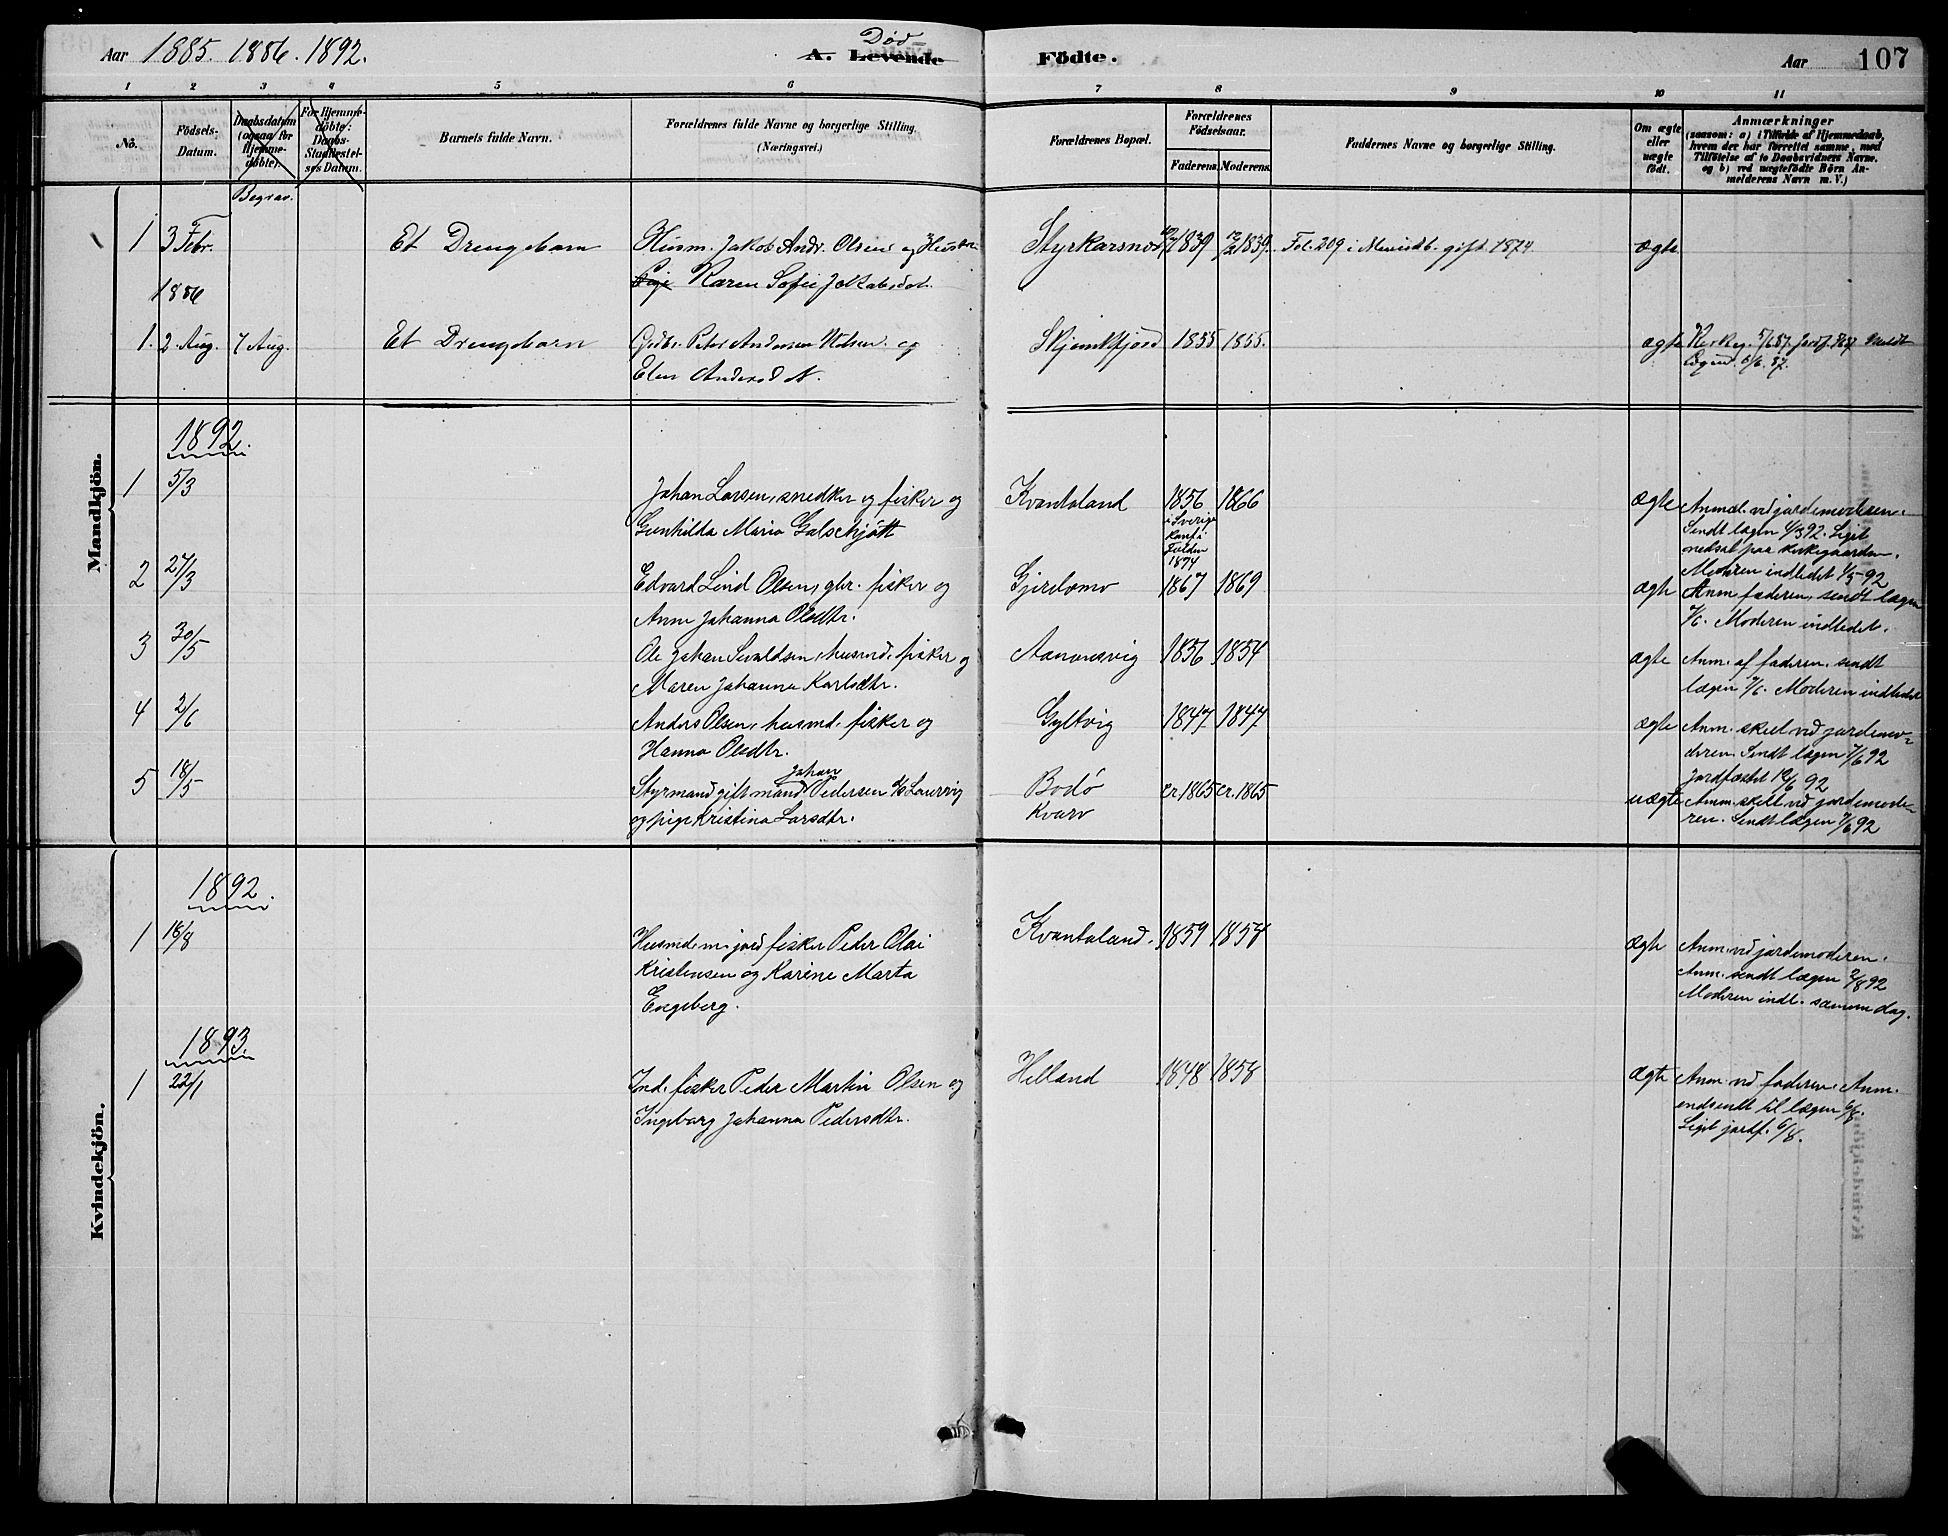 Aar 1885. 1886. 1892.
Død
A. Levende Födte.
Aar 107
1 2 3 4 5 6 7 8 9 10 11
No.
Födsels-
Datum.
Daabsdatum
(ogsaa for
Hjemme-
döbte).
For Hjemme-
döbte:
Daabs-
Stadfæstel-
ses Datum.
Barnets fulde Navn.
Forældrenes fulde Navne og borgerlige Stilling.
(Næringsvei.)
Forældrenes Bopæl.
Forældrenes
Födselsaar.
Faderens. Moderens.
Faddernes Navne og borgerlige Stilling.
Om ægte
eller
uægte
födt.
Anmærkninger
(saasom: a) i Tilfælde af Hjemmedaab,
hvem der har forrettet samme, med
Tilföielse af to Daabsvidners Navne.
og b) ved uægtefödte Börn An-
melderens Navn m. V.)
Begrav.
Mandkjön.
1 3 Febr. Et Drengebarn Husm. Jakob Andr. Olsen og Hustru Styrkarsnes 1839 1839. Fol. 209 i gift 1874 ægte
Pige Karen Sofie Jakobsdat.
1886
1. 2. Aug. 7 Aug. Et Drengebarn Gdbr. Peter Andersen Nilsen og Skjomkfjord 1855 1855. ægte
Elen Andersd
1892.
1 5/3 Johan Larsen, snedker og fisker og Kvantoland 1856 1866 ægte Anmel. ved jordemoderen.
i Sverige
Gunhilda Maria Galschjött Sendt lægen 4/3 92. Liget
konf. i
Folden
1874
nedsat paa kirkegaarden.
Moderen indledet 1/5-92
2 27/3 Edvard Lind Olsen, gbr. fisker og Gjerdomo 1867 1869 ægte Anm. faderen, sendt lægen
Anne Johanna Olsdtr. 7/6. Moderen indledet.
3 30/5 Ole Johan Sivaldsen, husmd. fisker og Aanonsvig 1856 1854 ægte Anm. af faderen. sendt
Maren Johanna Karlsdtr. lægen 7/6. Moderen indledet
4 2/6 Anders Olsen, husmd. fisker og Gyltvig 1847 1847 ægte Anm. skeet ved jordemo-
Hanna Olsdtr. deren. Sendt lægen 7/6 92
Jordfæstet 12/6 92
5 18/5 Styrmand gift mand Johan Pedersen Laurvig Bodö cr. 1865 cr. 1865 uægte Anm. skeet ved jordemode-
og pige Kristina Larsdtr. Kvarv ren. Sendt lægen 7/6 92
Kvindekjön.
1892.
1 18/8 Husmd. m. jord fisker Peder Olai Kvantoland. 1859 1854 ægte Anm. ved jordemoderen.
Kristensen og Karine Marta Anm. sendt lægen 2/8 92
Engeberg. Moderen indl. samme dag.
1893.
1 22/1 Ind. fisker Peder Martin Olsen og Helland 1848 1858 ægte Anm. ved faderen. Anm.
Ingeborg Johanna Pedersdtr. indsendt til lægen 6/8.
Liget jordf. 6/8.